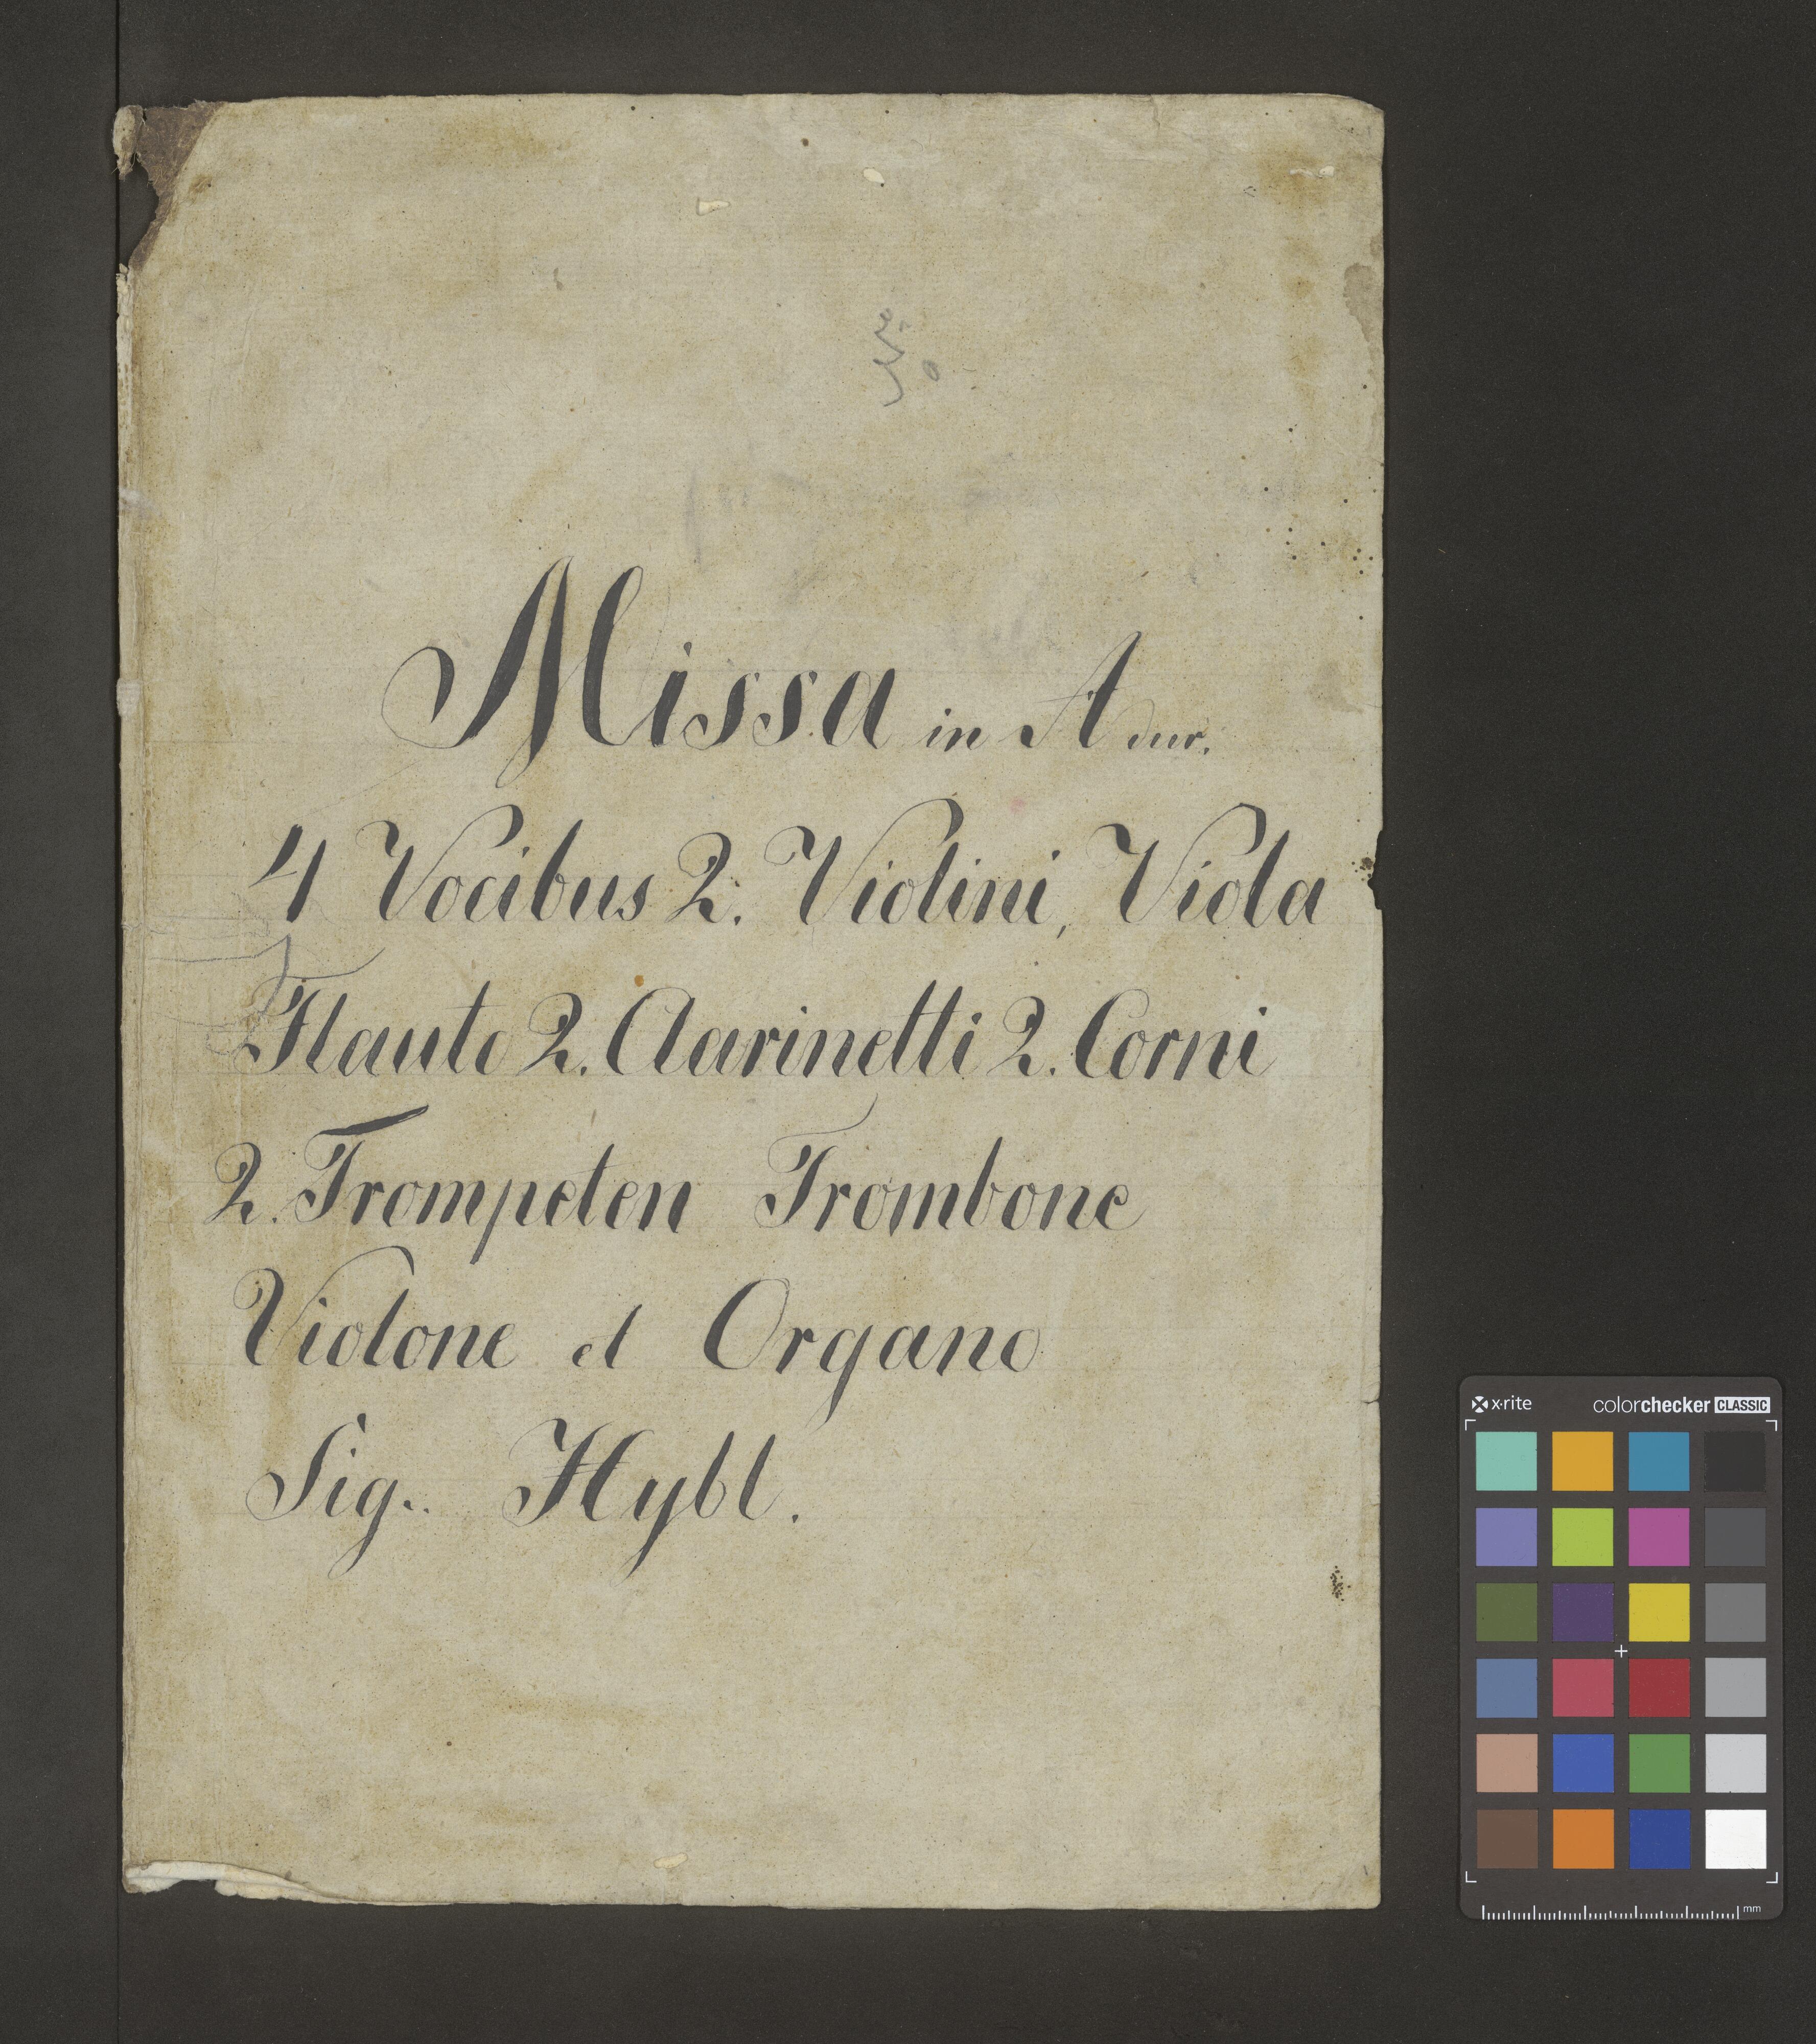 Missa in A dur.
4 Vocibus 2. Violini, Viola
Flauto 2. Clarinetti 2. Corni
2. Trompeten Trombone
Violone et Organo
Sig. Hybl.
x·rite colorchecker CLASSIC
mm